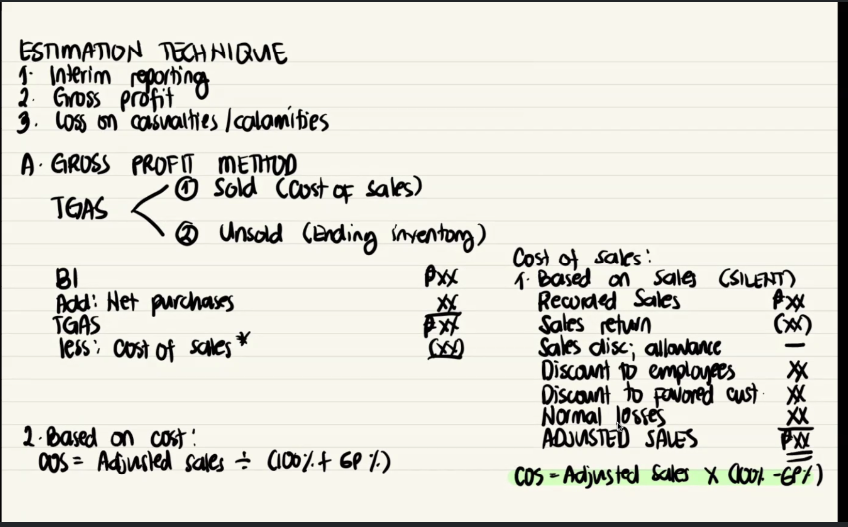 ESTIMATION TECHNIQUE
1. Interim reporting
2. Gross profit
3. Loss on casualties/calamities
A. GROSS PROFIT METHOD
TGAS
① Sold (Cost of sales)
② Unsold (Ending inventory)
BI ₱XX
Add: Net purchases XX
TGAS ₱XX
less: cost of sales* (XX)
2. Based on cost:
COS = Adjusted sales ÷ (100% + GP%)
Cost of sales:
1. Based on sales (SILENT)
Recorded Sales ₱XX
Sales return (XX)
Sales disc; allowance —
Discount to employees XX
Discount to favored cust. XX
Normal losses XX
ADJUSTED SALES ₱XX
COS = Adjusted sales X (100% - GP%)